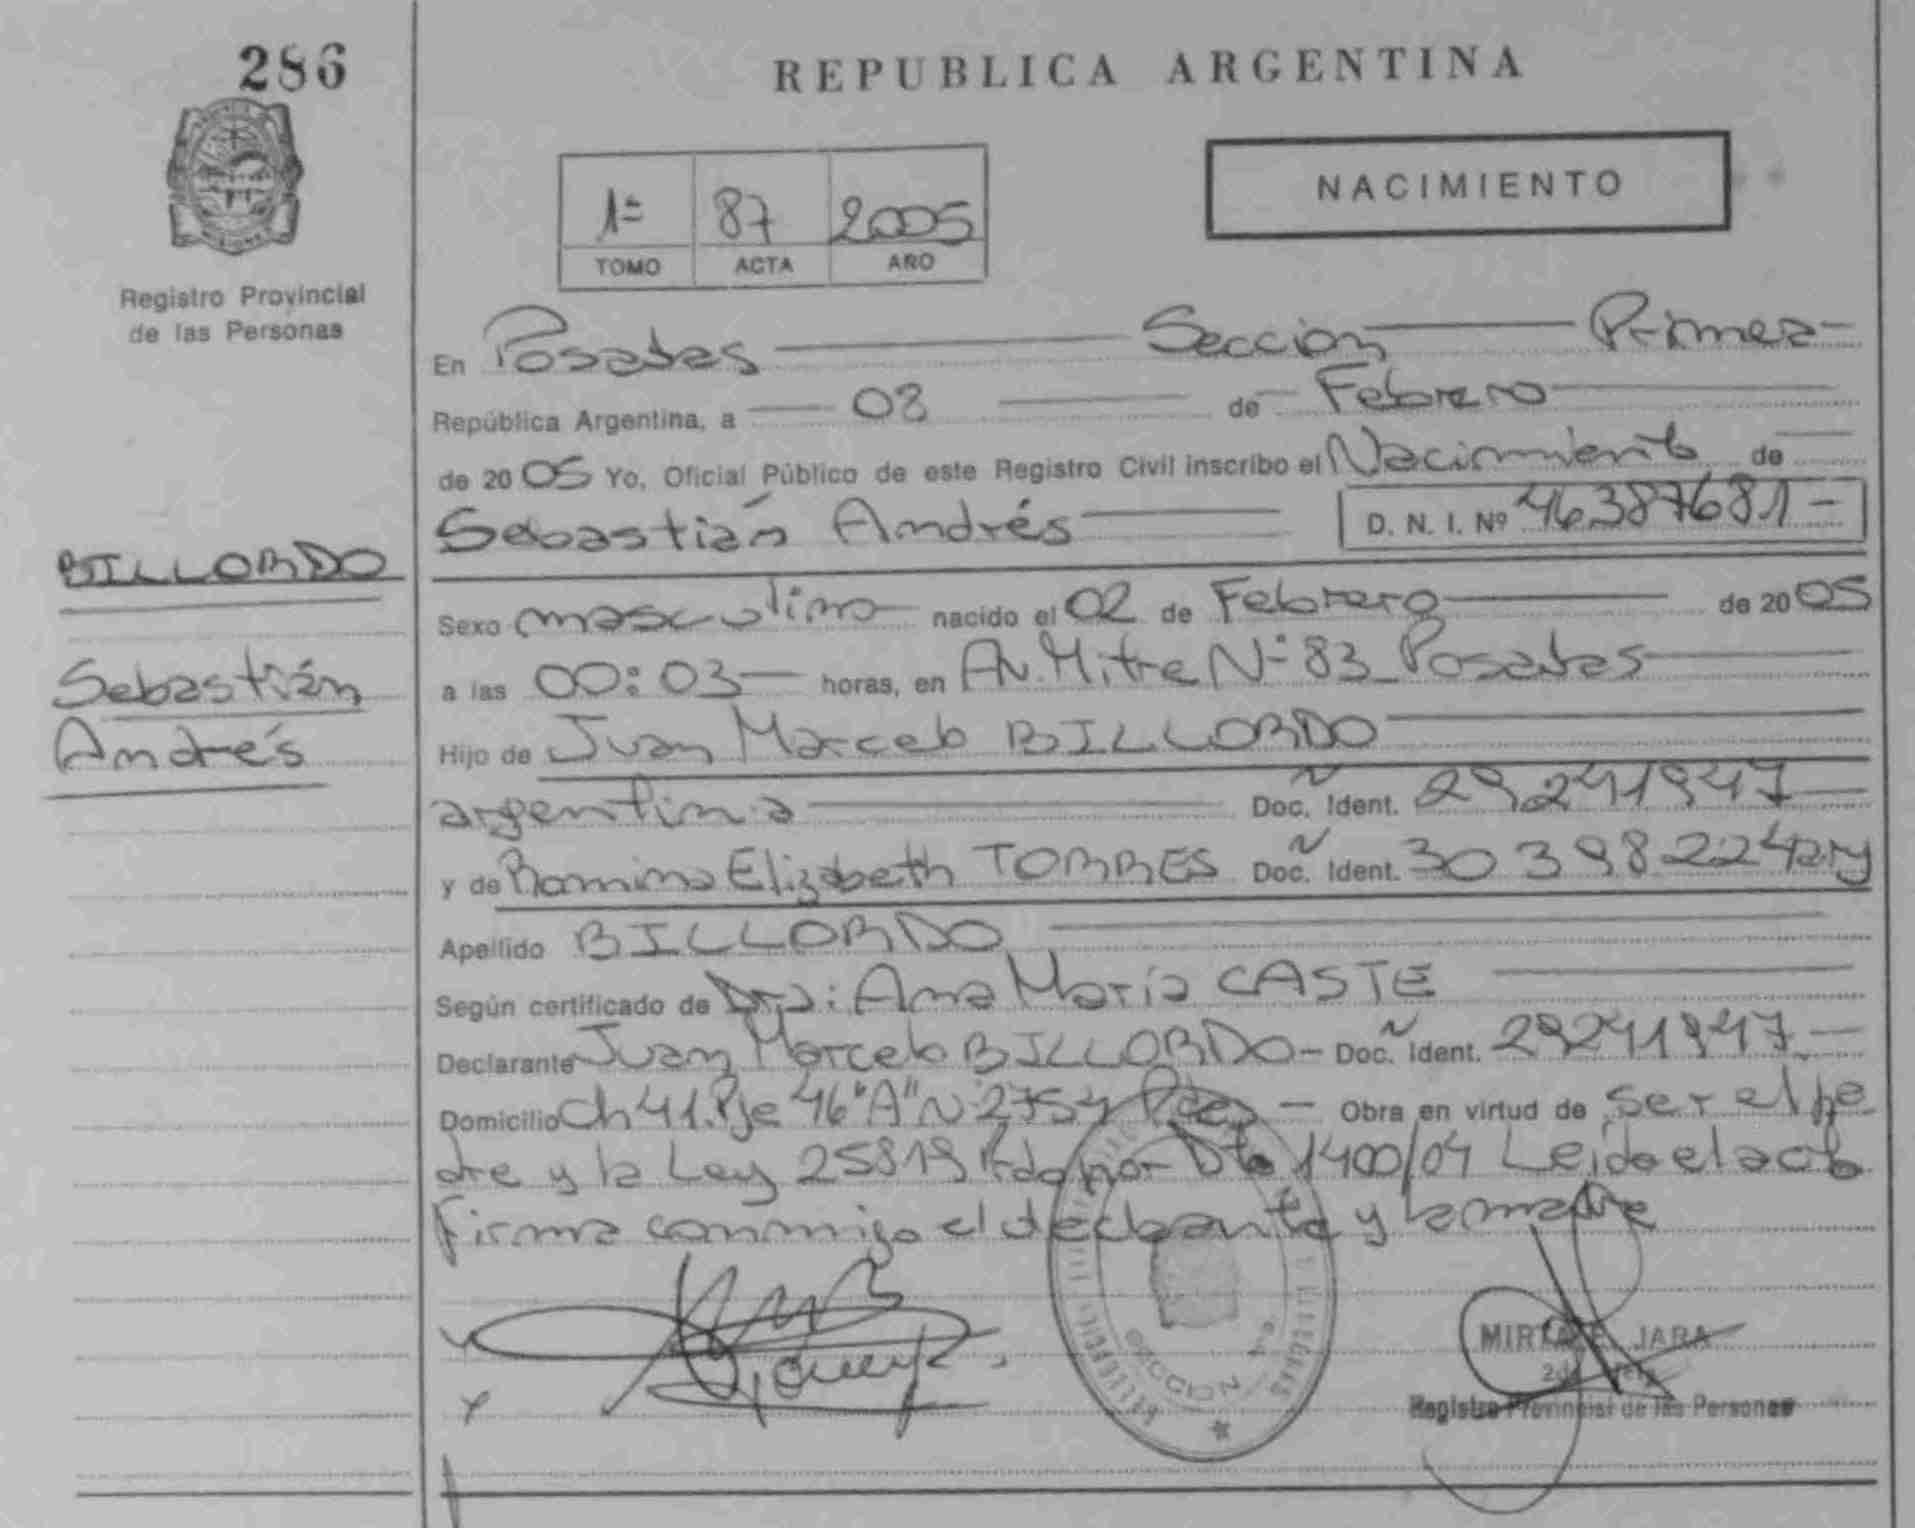 286
Registro Provincial
de las Personas
BILLORDO
Sebastián
Andrés
REPUBLICA ARGENTINA
1º 87 2005
TOMO ACTA AÑO
NACIMIENTO
En Posadas Sección Primera
República Argentina, a 03 de Febrero
de 2005 Yo, Oficial Público de este Registro Civil inscribo el Nacimiento de
Sebastián Andrés D. N. I. Nº 46387681
Sexo masculino nacido el 02 de Febrero de 2005
a las 00:03 horas, en Av. Mitre Nº 83 Posadas
Hijo de Juan Marcelo BILLORDO
argentina Doc. Ident. 29241947
y de Romina Elizabeth TORRES Doc. Ident. 30398224 arg
Apellido BILLORDO
Según certificado de Dra: Ana María CASTE
Declarante Juan Marcelo BILLORDO - Doc. Ident. 29241947.-
Domicilio Ch 41. Pje 46 "A" Nº 2754 Pdas - Obra en virtud de ser el pa
dre y la Ley 25819 Pdo por Dto 1400/04 Leída el acta
firma conmigo el declarante y la madre
SECCION 1a.
MIRTA E. JARA
Registro Provincial de las Personas